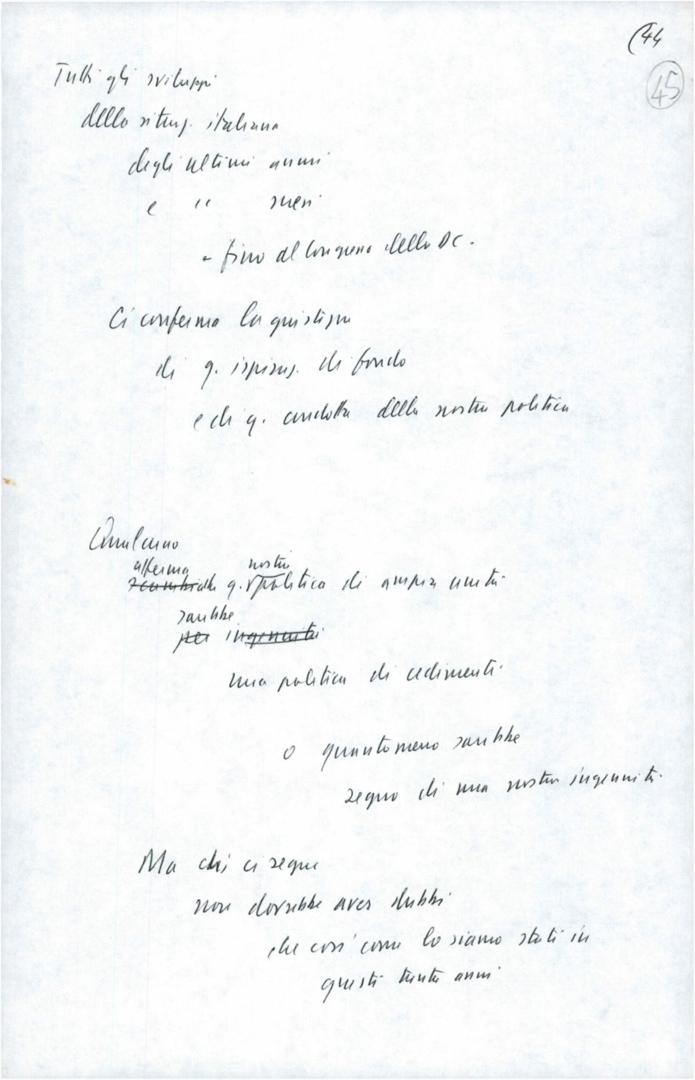 (44
45
Tutti gli sviluppi
della situaz. italiana
degli ultimi anni
e " mesi
- fino al Congresso della DC.
Ci conferma la
di q. ispiraz. di fondo
e di q. condotta della nostra politica
Qualcuno
afferma nostra
che q. politica di ampia unità
sarebbe
per ingenuità
una politica di cedimenti
o quantomeno sarebbe
segno di una nostra ingenuità.
Ma chi ci segue
non dovrebbe aver dubbi
che così come lo siamo stati in
questi trenta anni